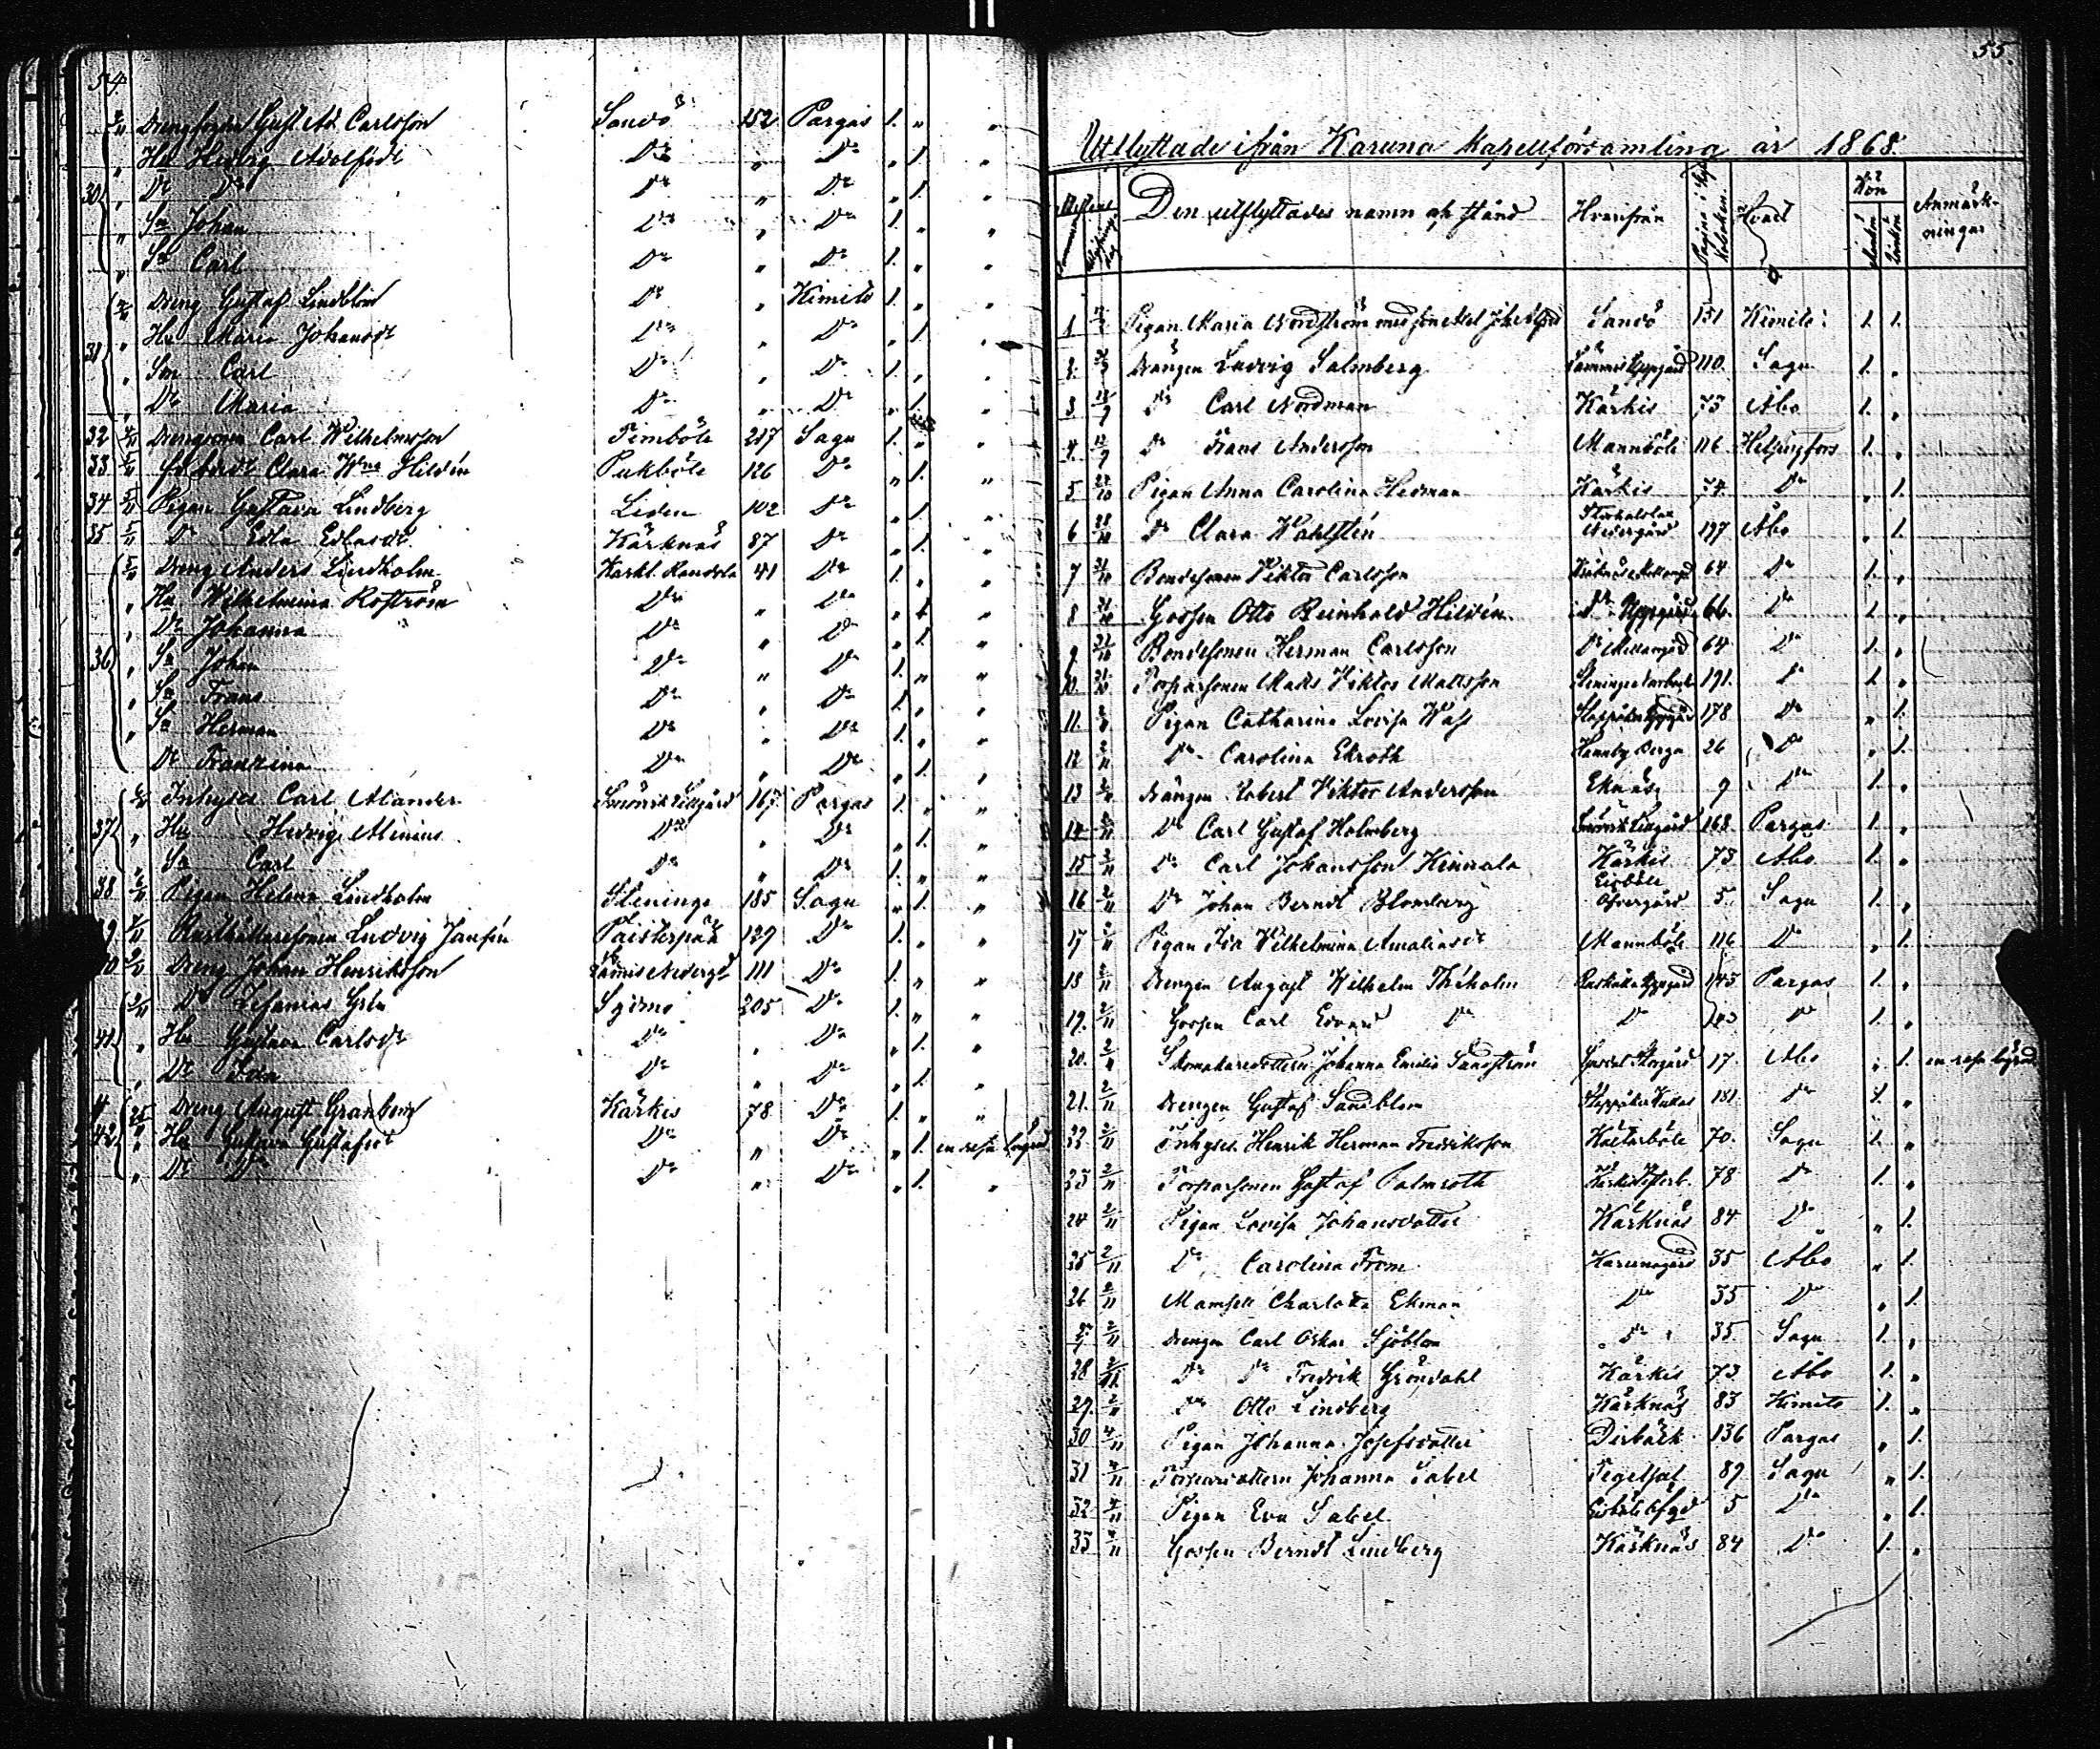 54.
2/11 Gust. Ad. Carlsson Sandö 152 Pargas 1. „ „
„ Hu Hedvig Adolfsdr Do „ Do „ 1. „
30 „ Dr Do Do „ Do „ 1. „
„ Sn Johan Do „ Do 1. „ „
„ Sn Carl Do „ Do 1. „ „
Dreng Gustaf Lindblom Do „ Kimito 1. „ „
„ Hu Maria Johansdr Do „ Do „ 1. „
31 „ Sn Carl Do „ Do 1. „ „
„ Dr Maria Do „ Do „ 1. „
32 4/11 Carl Wilhelmsson Timböle 217 Sagu 1. „ „
33 5/11 Clara Wna Hildén Pukböle 126 Do „ 1. „
34 5/11 Pigan Gustava Lindberg Liden 102 Do „ 1. „
35 5/11 Do Edla Edlasdr Kärknäs 87 Do „ 1. „
5/11 Dreng Anders Lindholm 41 Do 1. „ „
„ Hu Wilhelmina Roström Do „ Do „ 1. „
„ Dr Johanna Do „ Do „ 1. „
36 „ Sn Johan Do „ Do 1. „ „
„ Sn Frans Do „ Do 1. „ „
„ Sn Herman Do „ Do 1. „ „
Dr Franzina Do „ Do „ 1. „
Inhyses Carl Alander 167 Pargas 1. „ „
37 „ Hu Hedvig Alenius Do „ Do „ 1. „
„ Sn Carl Do „ Do 1. „ „
38 Pigan Helena Lindholm Steninge 185 Sagu „ 1. „
Rusthållaresonen Ludvig Jansén Paisterpää 129 Do 1. „ „
Dreng Johan Henriksson 111 Do 1. „ „
Do Zefanias 205 Do 1. „ „
41 „ Hu Gustava Carlsdr Do „ Do „ 1. „
„ Dr Do „ Do „ 1. „
Dreng August Granberg Kärkis 78 Do 1. „ „
42 „ Hu Gustava Gustafsdr Do „ Do „ 1. en resa lägrad
„ Dr Do Do „ Do „ 1. „
55.
Utflyttade ifrån Karuna Kapellförsamling år 1868.
Den utflyttades namn och stånd Hvarifrån Pagina i Kyrkoboken. Hvart Kön Mankön Qvinkön Anmärkningar
1. Pigan Maria Nordström med son Sandö 151 Kimito 1. 1.
2. Drängen Ludvig Salmberg 110. Sagu 1. „
3. Do Carl Nordman Kärkis 73 Åbo 1. „
4. Do Frans Andersson Mannböle 116 Helsingfors 1. „
5 Pigan Anna Carolina Hedman Kärkis 74 Do „ 1.
6 Do Clara Wahlstén Nedergård 197 Åbo „ 1.
7 Bondesonen Viktor Carlsson 64 Do 1. „
8 Gossen Otto Reinhold Hildén Do Uppgård 66. Do 1. „
9 Bondesonen Herman Carlsson Do Mellangård 64 Do 1. „
10. Torparsonen Mats Viktor Mattsson 191. Do 1. „
11. Pigan Catharina Lovisa Wass 178 Do „ 1.
12 Do Carolina Ekroth Berga 26 Do „ 1.
13 Drängen Robert Viktor Andersson Eknäs 9 Do 1. „
14 Do Carl Gustaf Holmberg 168 Pargas 1. „
15 Do Carl Johansson Kinnala Kärkis 73 Åbo 1. „
16 2/11 Do Johan Berndt Blomberg Eisböle Öfvergård 5. Sagu 1. „
17 Pigan Ida Wilhelmina Amaliasdr Mannböle 116 Do „ 1.
18 Drengen August Wilhelm Théholm 143 Pargas 1. „
19. 2/11 Gossen Carl Edvard Do Do 143 Do 1. „
20. Skomakaredottern Johanna Emilia Sandström 17. Åbo „ 1. en resa lägrad
21. 2/11 Drengen Gustaf Sandblom 181 Do 1. „
22 2/11 Inhyses Henrik Herman Fredriksson Kalterböle 70. Sagu 1. „
23 2/11 Torparsonen Gustaf Palmroth 78 Do 1. „
24 2/11 Pigan Lovisa Johansdotter Kärknäs 84 Do „ 1.
25 2/11 Do Carolina From Karunagård 35 Åbo „ 1.
26 2/11 Mamsell Charlotta Ekman Do 35 Do „ 1.
27 2/11 Drengen Carl Oskar Sjöblom Do 35 Sagu 1. „
28 2/11 Do Do Fredrik Gröndahl Kärkis 73 Åbo 1. „
29. 2/11 Do Otto Lindberg Kärknäs 83 Kimito 1. „
30 4/11 Pigan Johanna Josefsdotter Dirbäck 136 Pargas „ 1.
31 4/11 Torparedottern Johanna Sabel Tegelsal 89 Sagu „ 1.
32 4/11 Pigan Eva Sabel 5 Do „ 1.
33 4/11 Gossen Berndt Lindberg Kärknäs 84 Do 1. „